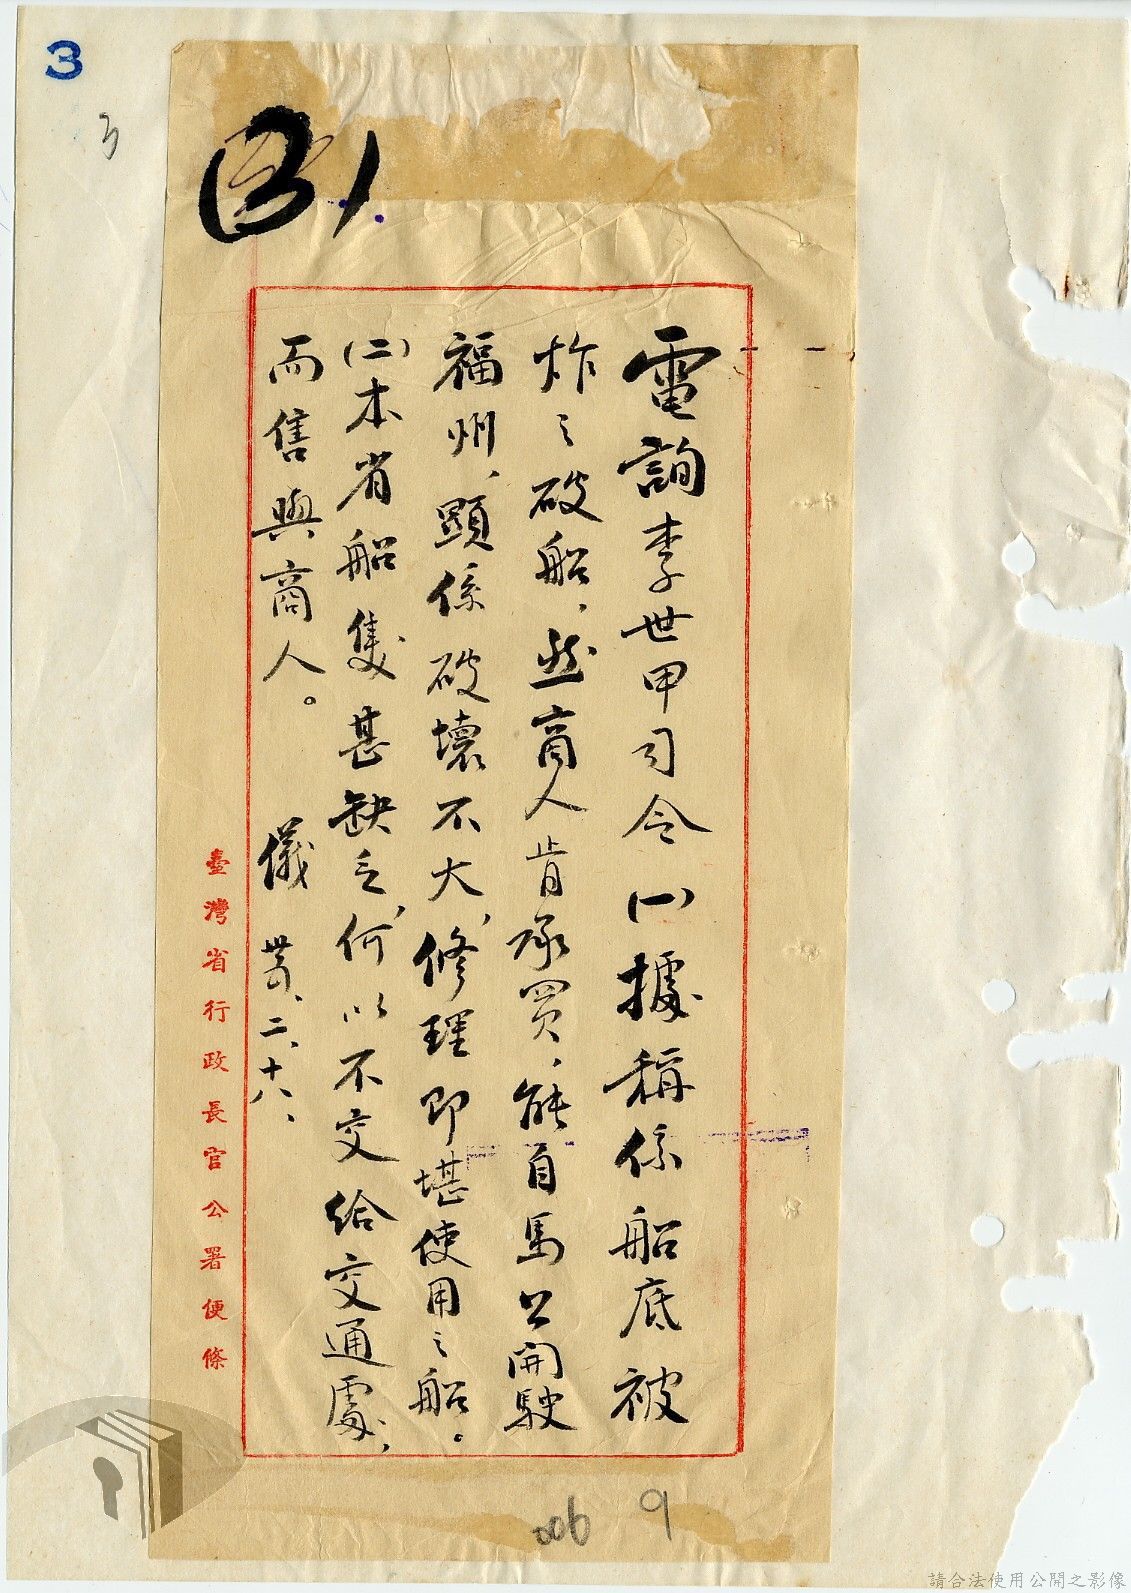 3
3
(3)
電詢李世甲司令(一)據稱係船底被
炸之破船，然商人肯承買，能自馬公開駛
福州、顯係破壞不大、修理即堪使用之船。
(二)本省船隻甚缺乏、何以不交給交通處、
而售與商人。 儀 卅五、二、十八、
臺灣省行政長官公署便條
006
9
請合法使用公開之影像